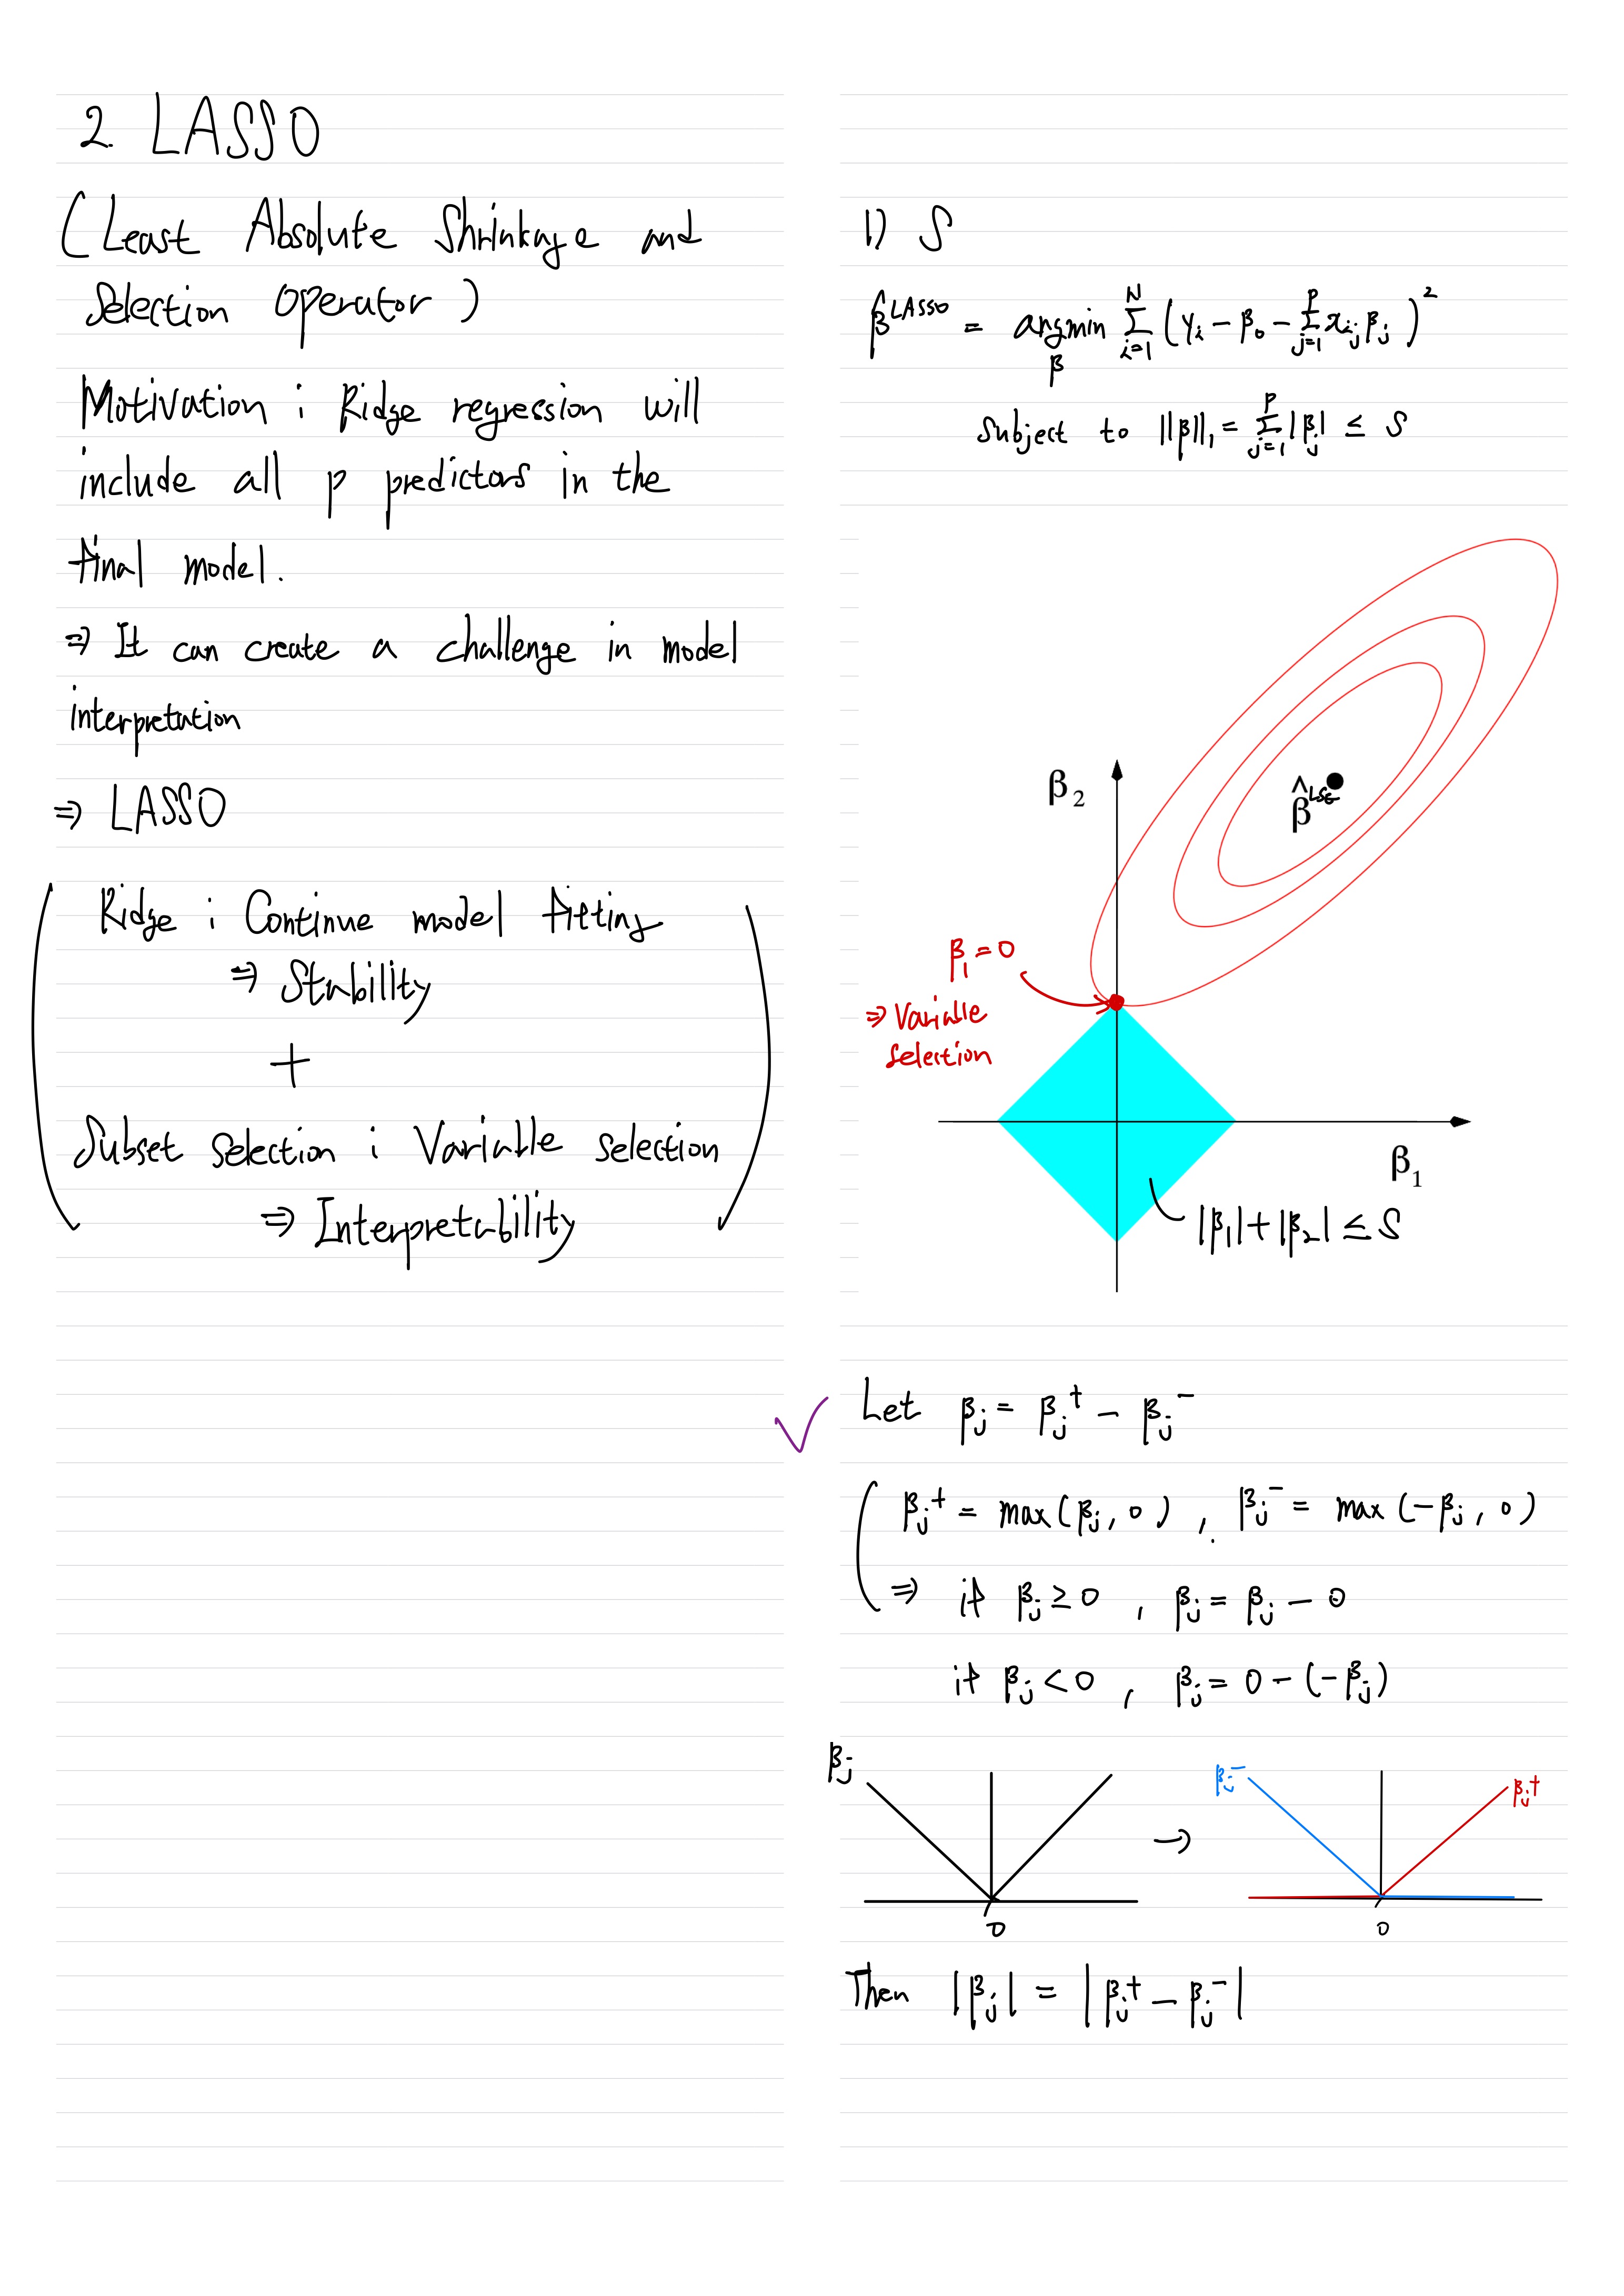 2. LASSO
(Least Absolute Shrinkage and
Selection Operator)
Motivation : Ridge regression will
include all p predictors in the
final model.
⇒ It can create a challenge in model
interpretation
⇒ LASSO
Ridge : Continue model fitting
⇒ Stability
+
Subset selection : Variable selection
⇒ Interpretability
1) S
β^LASSO = argmin_β Σ_{i=1}^{N} (y_i − β_0 − Σ_{j=1}^{p} x_ij β_j)^2
Subject to ||β||_1 = Σ_{j=1}^{p} |β_j| ≤ S
β_2
β̂^LSE
β_1 = 0
⇒ Variable
Selection
β_1
|β_1| + |β_2| ≤ S
Let β_j = β_j^+ − β_j^-
β_j^+ = max(β_j, 0) , β_j^- = max(−β_j, 0)
⇒ if β_j ≥ 0 , β_j = β_j − 0
if β_j < 0 , β_j = 0 − (−β_j)
β_j
0
→
β_j^-
β_j^+
0
Then |β_j| = |β_j^+ − β_j^-|